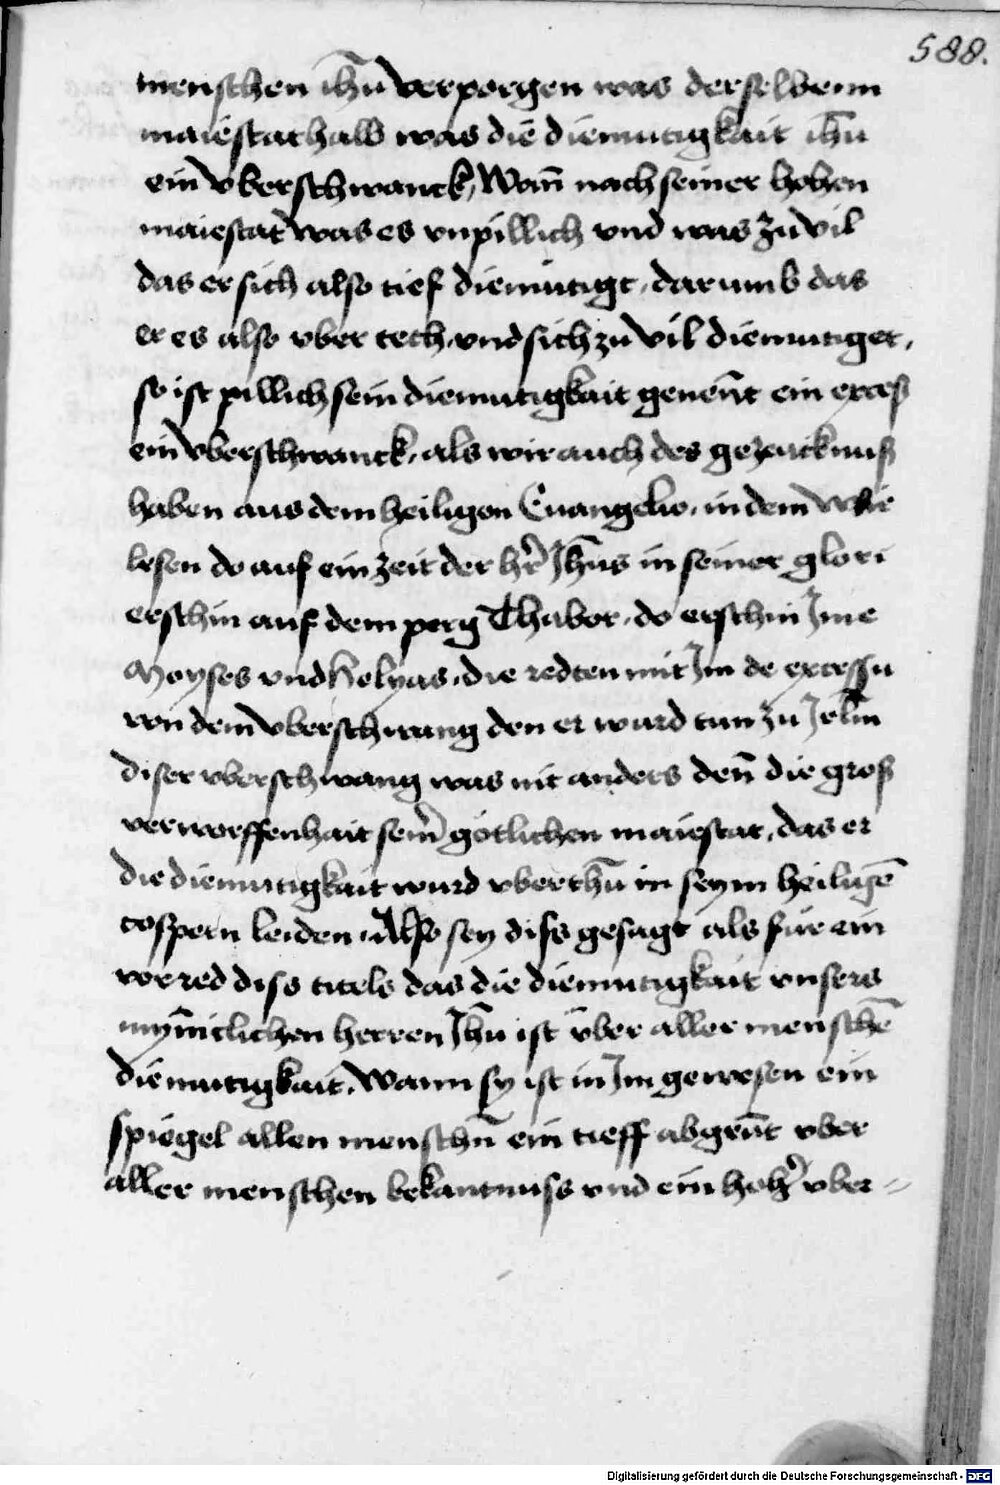 588.
menschen ih̅u verporgen was derselbenn
maiestat halb was die diemutigkait ih̅u
ein vberschwanck, Wan̅ nach seiner hohen
maiestat was es vnpillich vnd was zu vil
das er sich also tief diemutigt, darumb das
er es also vber tech, vnd sich zu vil diemutiget,
so ist pillich sein diemutigkait genen̅t ein exceß
ein vberschwanck, als wir auch des gezeucknuß
haben aus dem heiligen Euangelio, in dem wir
lesen do auf ein zeit der hr̅ Jh̅us in seiner glori
erschin auf dem perg Thabor, do erschin Jme
Moyses vnd Helyas, die redten mit Jm de excessu
von dem vberschwang den er wurd tun zu Jrlm̅
diser vberschwang was nit anders den̅ die groß
verworffenhait seinr̅ götlichen maiestat, das er
die diemutigkait wurd vberthu̅ in seym heilige̅
cospern leiden, Also sey diss gesagt als für ein
vorred diss titels das die diemutigkait vnsers
mȳnitlichen herren Jh̅u ist vber aller mensche̅
diemutigkait, Wann sy ist in Jm gewesen ein
spiegel allen menschn̅ ein tieff abgru̅t vber
aller menschen bekantnuss vnd ein hohr̅ vber=
Digitalisierung gefördert durch die Deutsche Forschungsgemeinschaft - DFG